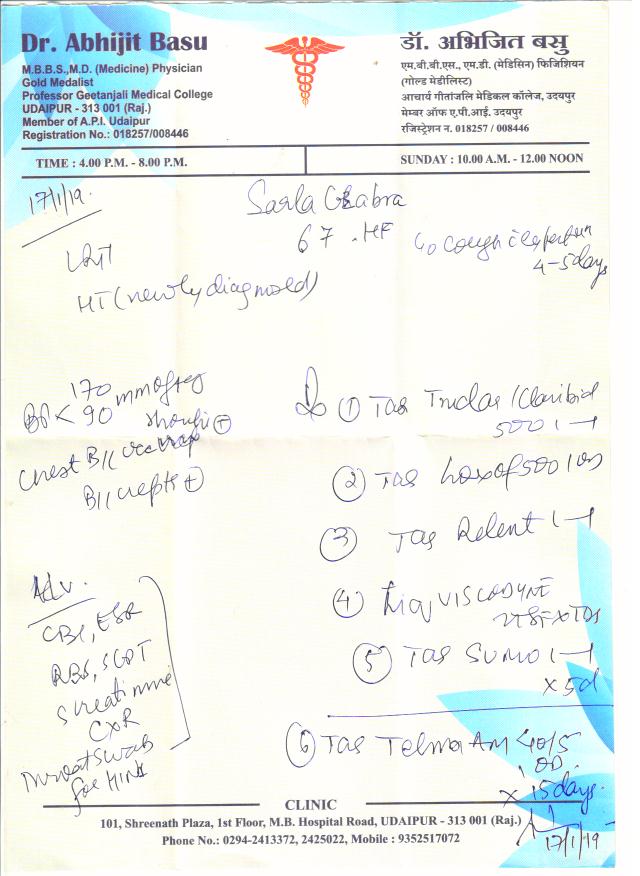 Dr. Abhijit Basu
M.B.B.S.,M.D. (Medicine) Physician
Gold Medalist
Professor Geetanjali Medical College
UDAIPUR - 313 001 (Raj.)
Member of A.P.I. Udaipur
Registration No.: 018257/008446
डॉ. अभिजित बसु
एम.बी.बी.एस., एम.डी. (मेडिसिन) फिजिशियन
(गोल्ड मेडीलिस्ट)
आचार्य गीतांजलि मेडिकल कॉलेज, उदयपुर
मेम्बर ऑफ ए.पी.आई. उदयपुर
रजिस्ट्रेशन न. 018257 / 008446
TIME : 4.00 P.M. - 8.00 P.M.
SUNDAY : 10.00 A.M. - 12.00 NOON
17/1/19.
Sarla Chabra
67
c/o cough
4-5 days
HT (newly diagnosed)
170 mm of Hg
BP < 90 rhonchi +
Chest B/L
B/L crepts +
① Tab /Claribid
500 1-1
② Tab Loxof 500 1 OD
③ Tab Relent 1-1
④ Liq VISCODYNE
2TSF x TDS
⑤ Tab SUMO 1-1
x 5d
⑥ Tab Telma AM 40/5
OD
x 15 days.
17/1/19
Adv.
CBC, ESR
RBS, SGPT
S creatinine
CXR
Throat swab
for H1N1
CLINIC
101, Shreenath Plaza, 1st Floor, M.B. Hospital Road, UDAIPUR - 313 001 (Raj.)
Phone No.: 0294-2413372, 2425022, Mobile : 9352517072